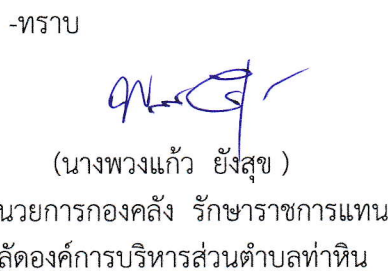 -ทราบ
(นางพวงแก้ว ยังสุข )
นวยการกองคลัง รักษาราชการแทน
ลัดองค์การบริหารส่วนตำบลท่าหิน